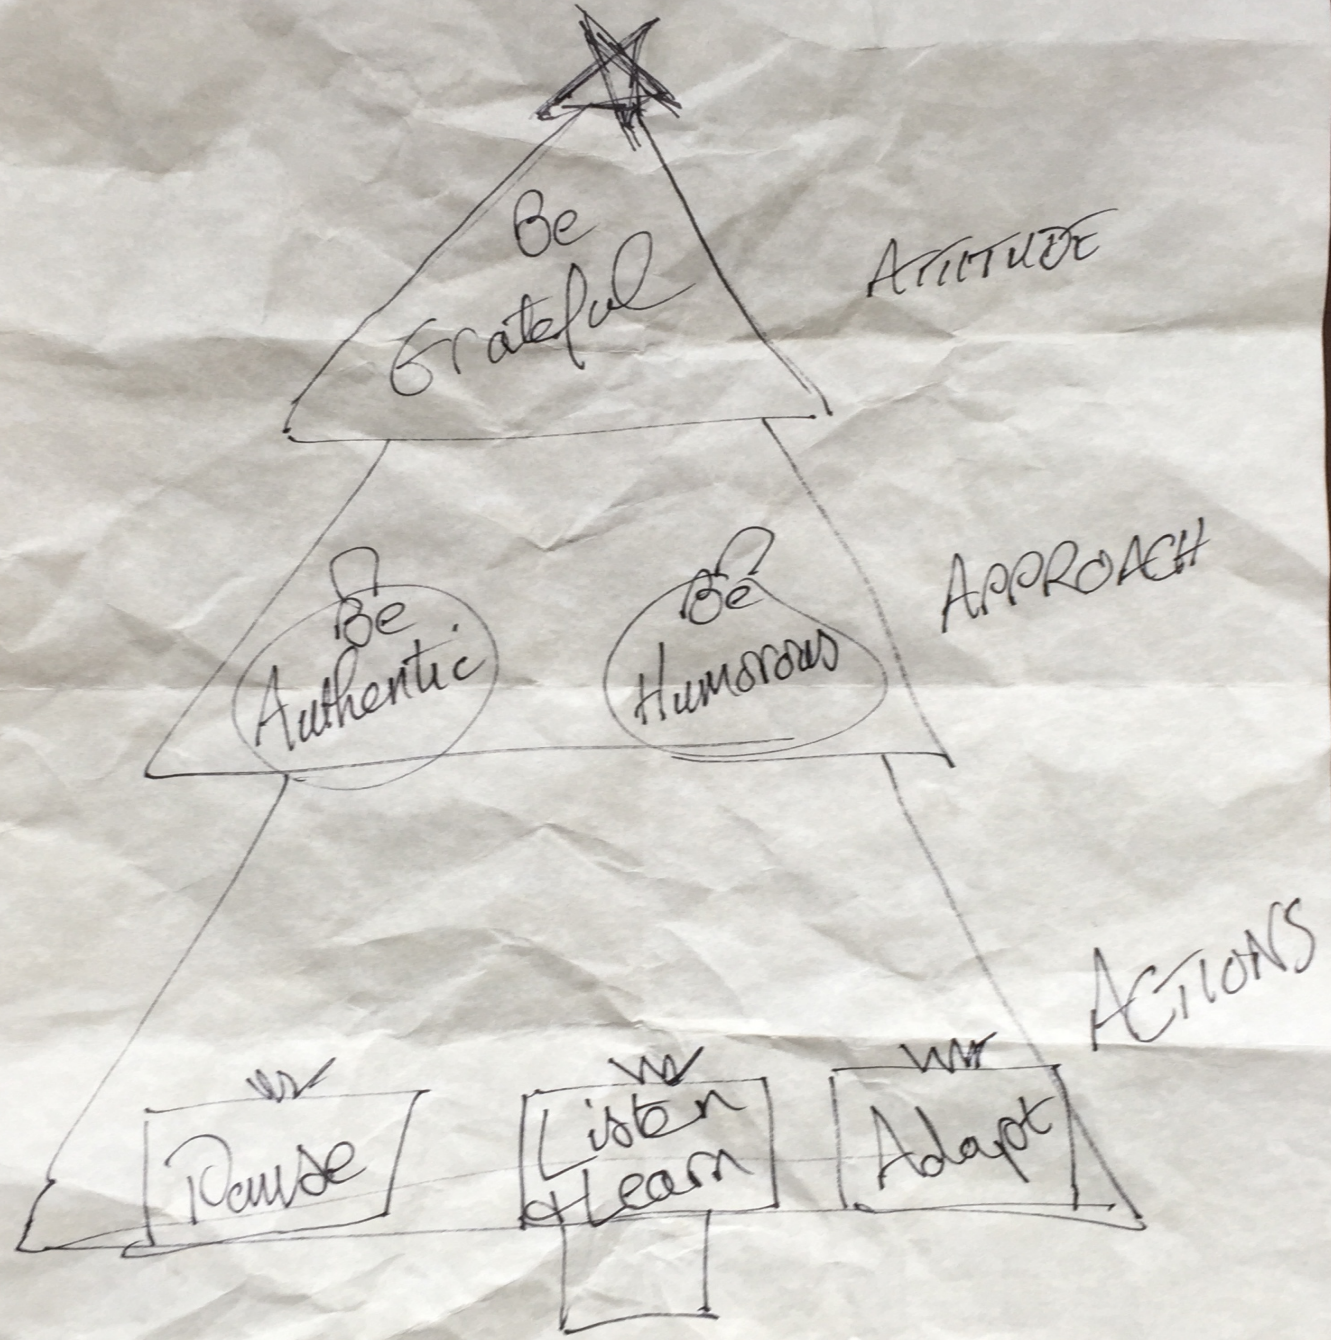 Be
Grateful
ATTITUDE
Be
Authentic
Be
Humorous
APPROACH
ACTIONS
Pause
Listen
+learn
Adapt